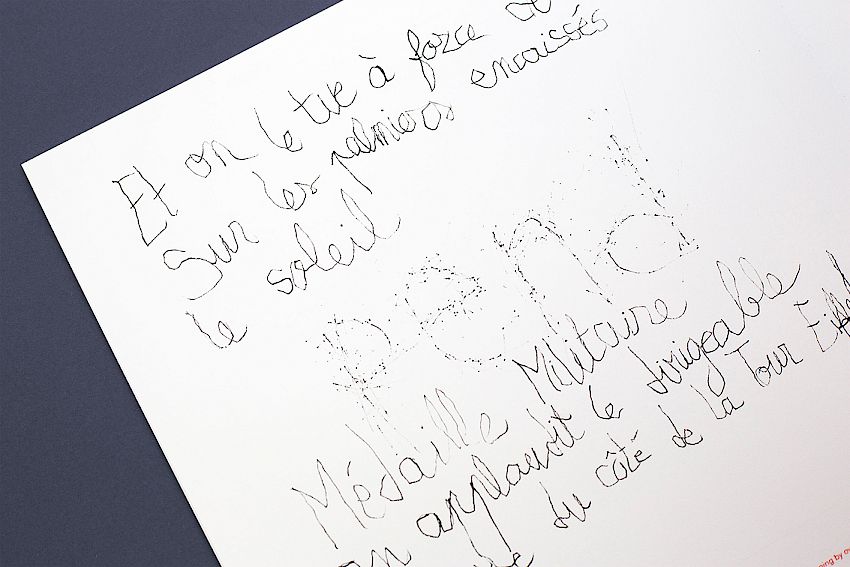 Et on le tue à force de
Sur les palmiers encaissés
le soleil
pend
Médaille Militaire
on applaudit le dirigeable
du côté de la Tour Eiffel